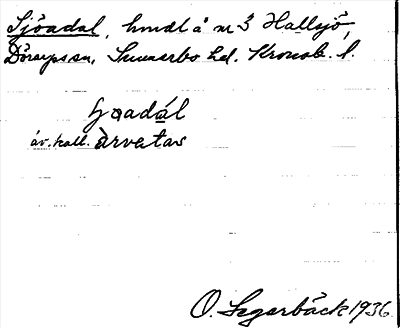 Sjöadal, hmdl å nr 3 Hallsjö,
Döraryps sn, Sunnerbo hd. Kronob. l.
h̥oadál
äv. kall. àrvetav
O. Segerbäck 1936.